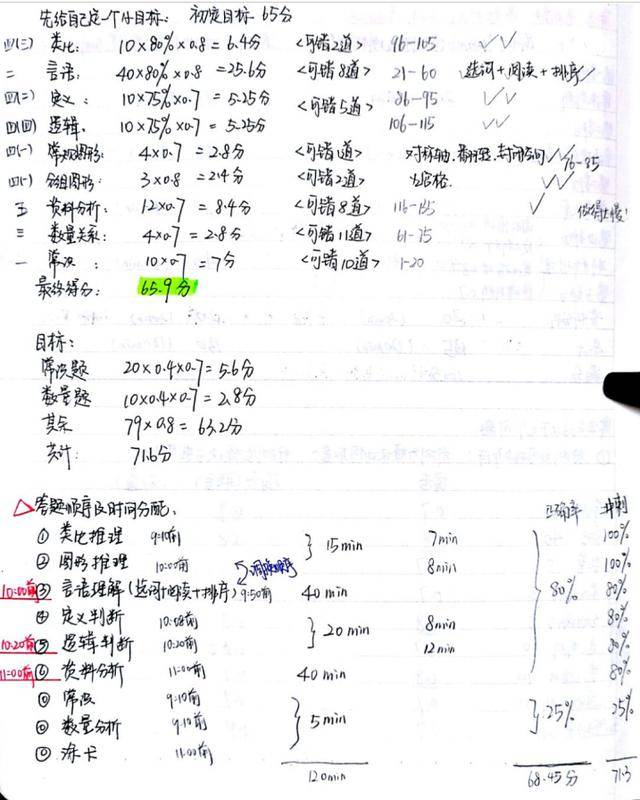 先给自己定一个小目标： 初定目标 65分
四(三) 类比： 10×80%×0.8 = 6.4分 <可错2道> 96-105 ✓✓
二 言语： 40×80%×0.8 = 25.6分 <可错8道> 21-60 选词+阅读+排序
四(二) 定义： 10×75%×0.7 = 5.25分 <可错5道> 86-95 ✓✓
四(四) 逻辑： 10×75%×0.7 = 5.25分 106-115 ✓✓
四(一) 常规图形： 4×0.7 = 2.8分 <可错1道> 对称轴、封闭空间 ✓✓ 76-85
四(一) 分组图形： 3×0.8 = 2.4分 <可错2道> ✓✓
五 资料分析： 12×0.7 = 8.4分 <可错8道> 116-135 ✓ 做得太慢！
三 数量关系： 4×0.7 = 2.8分 <可错11道> 61-75
一 常识： 10×0.7 = 7分 <可错10道> 1-20
最终得分： 65.9分
目标：
常识题 20×0.4×0.7 = 5.6分
数量题 10×0.4×0.7 = 2.8分
其余 79×0.8 = 63.2分
共计： 71.6分
△答题顺序及时间分配： 正确率 冲刺
① 类比推理 9:10前 15min 7min 100%
② 图形推理 10:00前 8min 100%
10:00前 ③ 言语理解(选词+阅读+排序) 9:50前 40min 80% 80%
④ 定义判断 10:08前 20min 8min 80%
10:20前 ⑤ 逻辑判断 10:20前 12min 80%
11:00前 ⑥ 资料分析 11:00前 40min 80%
常识 9:10前 5min 25% 25%
数量分析 9:10前
涂卡 11:00前
120min 68.45分 71.3